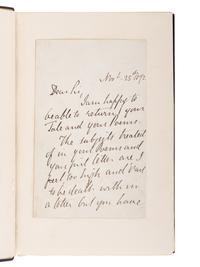 Nov. 25th 1872
Dear Sir,
I am happy to
be able to return your
Tale and your Poems.
The subjects treated
of in your Poems and
your last letter are I
feel too high and vast
to be dealt with in
a letter but you have